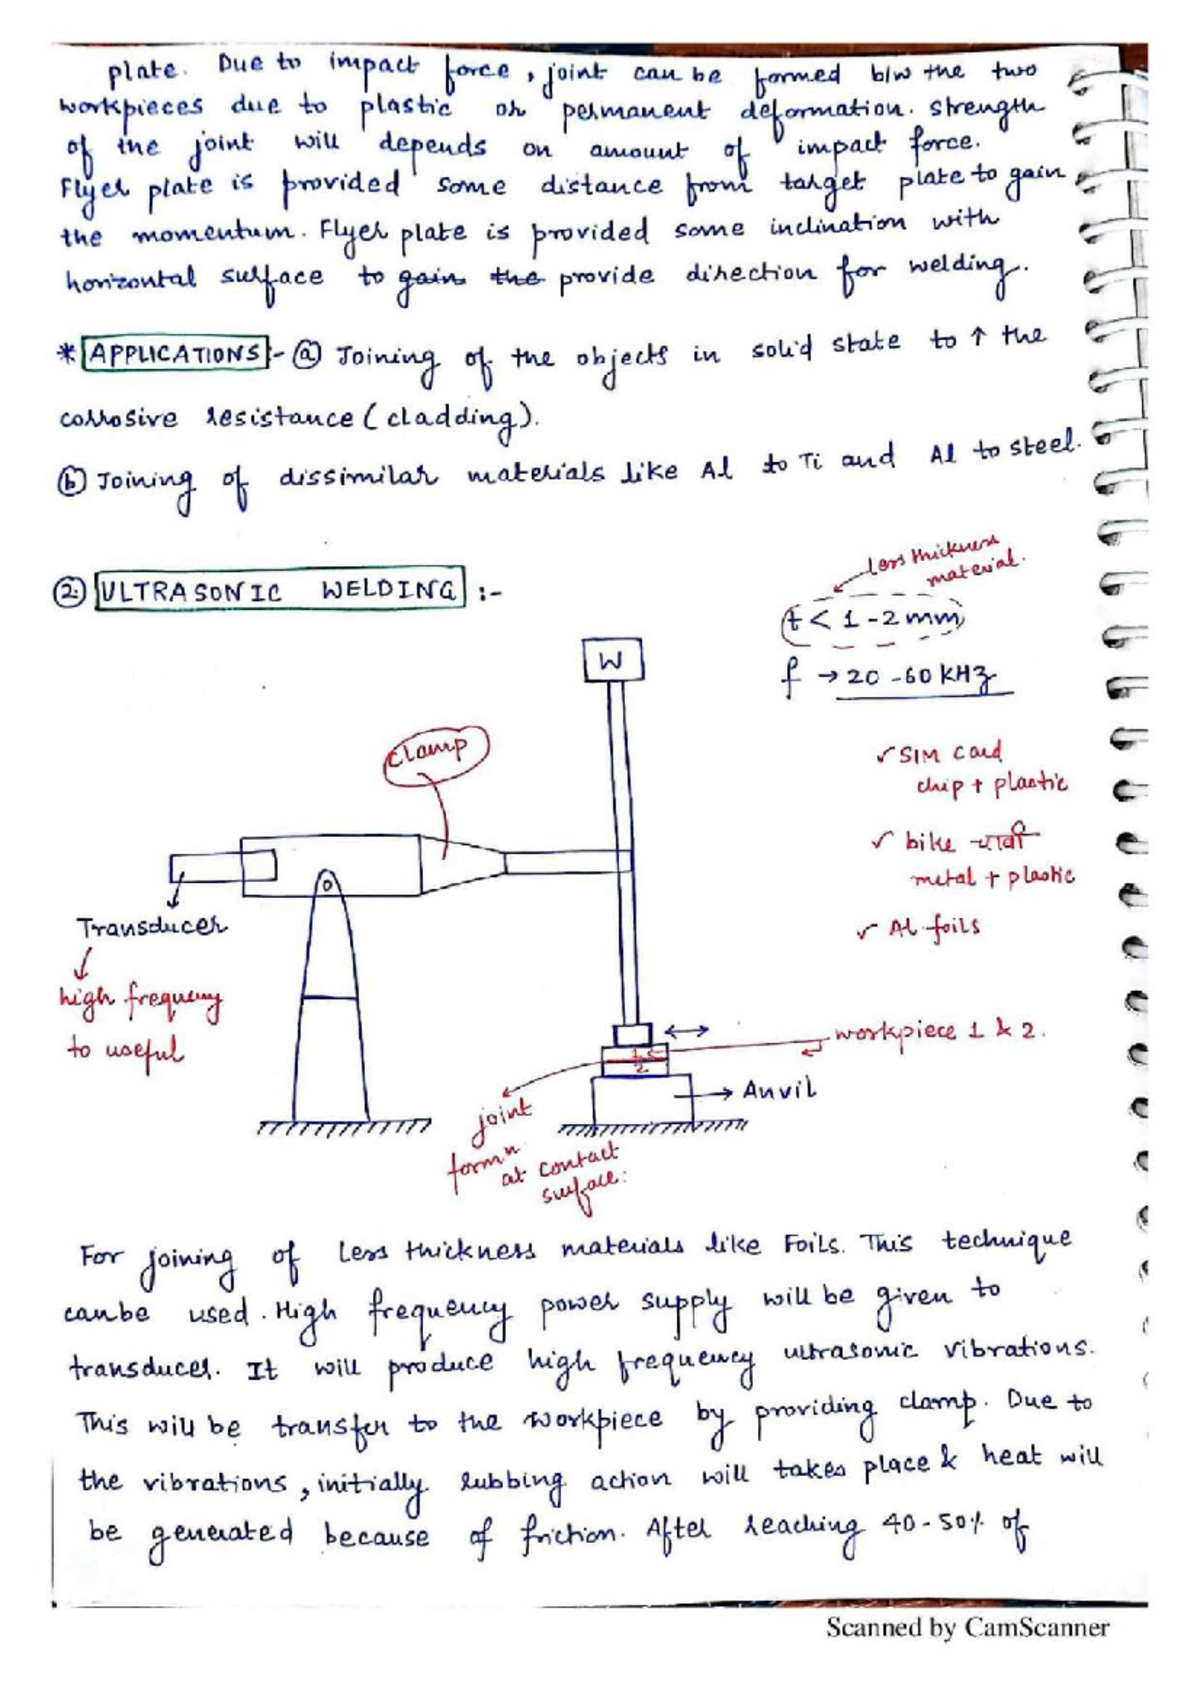 plate. Due to impact force, joint can be formed b/w the two
workpieces due to plastic or permanent deformation. strength
of the joint will depends on amount of impact force.
Flyer plate is provided some distance from target plate to gain
the momentum. Flyer plate is provided some inclination with
horizontal surface to gain the provide direction for welding.
* APPLICATIONS :- (a) Joining of the objects in solid state to ↑ the
corrosive resistance (cladding).
(b) Joining of dissimilar materials like Al to Ti and Al to steel.
less thickness
material.
(2.) ULTRASONIC WELDING :-
t < 1-2 mm
f → 20-60 KHz
W
clamp
✓ SIM card
chip + plastic
✓ bike चाबी
metal + plastic
✓ Al foils
Transducer
high frequency
to useful
workpiece 1 & 2.
1
2
Anvil
joint
formn
at contact
surface:
For joining of less thickness materials like Foils. This technique
can be used. High frequency power supply will be given to
transducer. It will produce high frequency ultrasonic vibrations.
This will be transfer to the workpiece by providing clamp. Due to
the vibrations, initially rubbing action will takes place & heat will
be generated because of friction. After reaching 40-50% of
Scanned by CamScanner